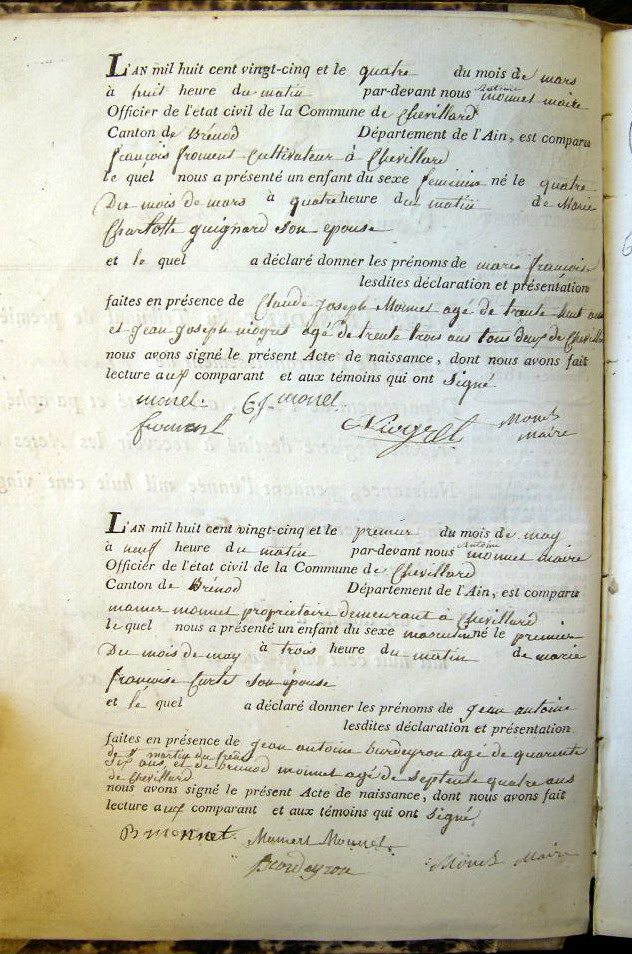 L'AN mil huit cent vingt-cinq et le quatre du mois de mars
à huit heure du matin par-devant nous Antoine monnet maire
Officier de l'état civil de la Commune de Chevillard
Canton de Brénod Département de l'Ain, est comparu
françois froment Cultivateur à Chevillard
le quel nous a présenté un enfant du sexe feminin né le quatre
Du mois de mars à quatre heure du matin de Marie
Charlotte guignard son epouse
et le quel a déclaré donner les prénoms de marie françoise
lesdites déclaration et présentation
faites en présence de Claude joseph Monnet agé de trente huit ans
et jean joseph agé de trente trois ans tous deux de Chevillard
nous avons signé le présent Acte de naissance, dont nous avons fait
lecture aux comparant et aux témoins qui ont signé
monet. CJ monet
froment Monet
maire
L'AN mil huit cent vingt-cinq et le premier du mois de may
à neuf heure du matin par-devant nous Antoine monnet maire
Officier de l'état civil de la Commune de Chevillard
Canton de Brénod Département de l'Ain, est comparu
mamer monnet proprietaire demeurant à Chevillard
le quel nous a présenté un enfant du sexe masculin né le premier
Du mois de may à trois heure du matin de marie
françoise Curtet son épouse
et le quel a déclaré donner les prénoms de jean antoine
lesdites déclaration et présentation
faites en présence de jean antoine burdeyron agé de quarente
de St martin du frêne
six ans, et de benoid monnet agé de septente quatre ans
de Chevillard
nous avons signé le présent Acte de naissance, dont nous avons fait
lecture aux comparant et aux témoins qui ont signé
B monnet. Mamert Monnet.
Burdeyron Monet Maire